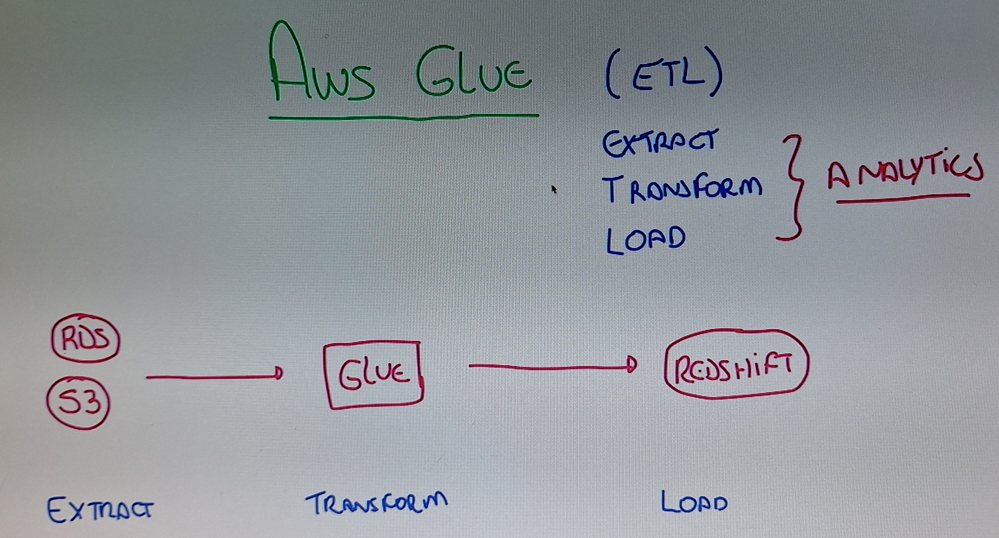 AWS GLUE (ETL)
EXTRACT
TRANSFORM
LOAD
ANALYTICS
RDS
S3
GLUE
REDSHIFT
EXTRACT TRANSFORM LOAD